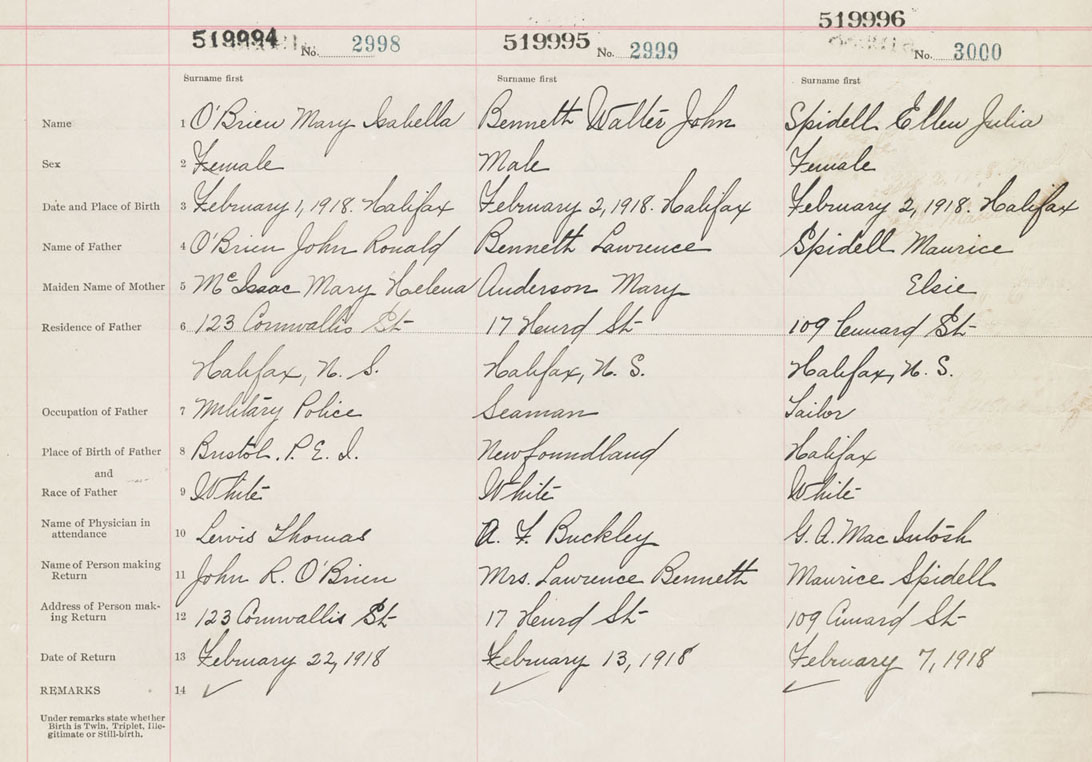 519994 No. 2998 519995 No. 2999 519996 No. 3000
Surname first Surname first Surname first
Name 1 O'Brien Mary Isabella Bennett Walter John Spidell Ellen Julia
Sex 2 Female Male Female
Date and Place of Birth 3 February 1, 1918. Halifax February 2, 1918. Halifax February 2, 1918. Halifax
Name of Father 4 O'Brien John Ronald Bennett Lawrence Spidell Maurice
Maiden Name of Mother 5 McIssac Mary Helena Anderson Mary Elsie
Residence of Father 6 123 Cornwallis St 17 St 109 St
Halifax, N. S. Halifax, N. S. Halifax, N. S.
Occupation of Father 7 Military Police Seaman Tailor
Place of Birth of Father 8 Bristol. P. E. I. Newfoundland Halifax
and
Race of Father 9 White White White
Name of Physician in
attendance 10 Lewis Thomas A. F. Buckley G. A. MacIntosh
Name of Person making
Return 11 John R. O'Brien Mrs. Lawrence Bennett Maurice Spidell
Address of Person mak-
ing Return 12 123 Cornwallis St 17 St 109 St
Date of Return 13 February 22, 1918 February 13, 1918 February 7, 1918
REMARKS 14 ✓ ✓ ✓
Under remarks state whether
Birth is Twin, Triplet, Ille-
gitimate or Still-birth.